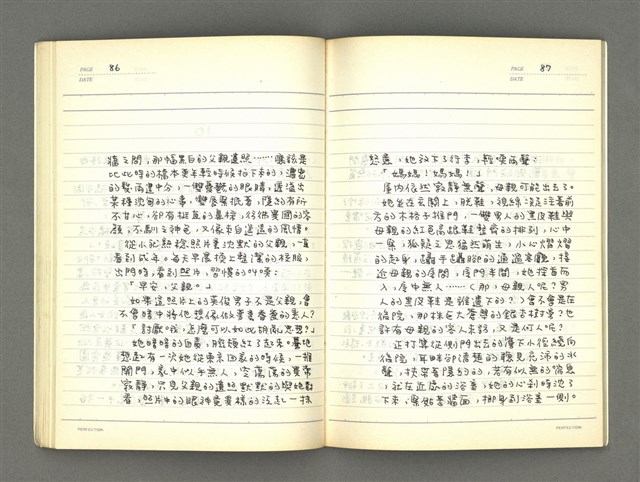 PAGE 86
DATE
牆之間，那幅黑白的父親遺照……應該是
比此時的橋本更年輕時候拍下來的，濃密
的髮兩邊中分，一雙憂鬱的眼睛，透溢出
某種沈甸的心事，雙唇緊抿著，隱約有所
不甘心，卻有挺直的鼻樑，彷彿異國的容
顏，不馴之神色，又像來自遙遠的風情。
從小就熟稔照片裏沈默的父親，一直
看到成年。每天早晨換上整潔的校服，
出門時，看到照片，習慣的叫喚：
「早安，父親。」
如果這照片上的英俊男子不是父親，會
不會暗中將他想像做妻妻眷眷的意人？
「討厭哦，怎麼可以如此胡亂思想？」
她暗暗的自責，臉頰紅了起來。驀地
想起有一次她從東京回家的時候，一推
開門，家中似乎無人，空蕩蕩的異常
寂靜，只見父親的遺照默默的與她對
看，照片中的眼神竟異樣的泛起一抹
PERFECTION
PAGE 87
DATE
怨意，她放下了行李，輕喚兩聲：
「媽媽！媽媽……」
屋內依然寂靜無聲，母親可能出去了。
她坐在玄關上，脫鞋，視線凝注著前
方的木格子推門，一雙男人的黑皮鞋與
母親的紅色高跟鞋整齊的排列，心中
一緊，狐疑之思猛然萌生，小心翼翼
的起身，躡手躡腳的通過客廳，接
近母親的房間，房門半開，她探首而
入，房中無人……（那，母親人呢？男
人的黑皮鞋是誰遺下的？）會不會是在
後院，那株巨大蒼鬱的銀杏樹旁？也
許有母親的客人來訪，又是何人呢？
正打算從側門出去的簷下小徑繞向
後院，耳畔卻清楚的聽見泠泠的水
聲，挾帶著隱約的，若有似無的喘息
，就在近處的浴室，她的心剎時沈了
下來，緊貼著牆面，挪身到浴室一側。
PERFECTION